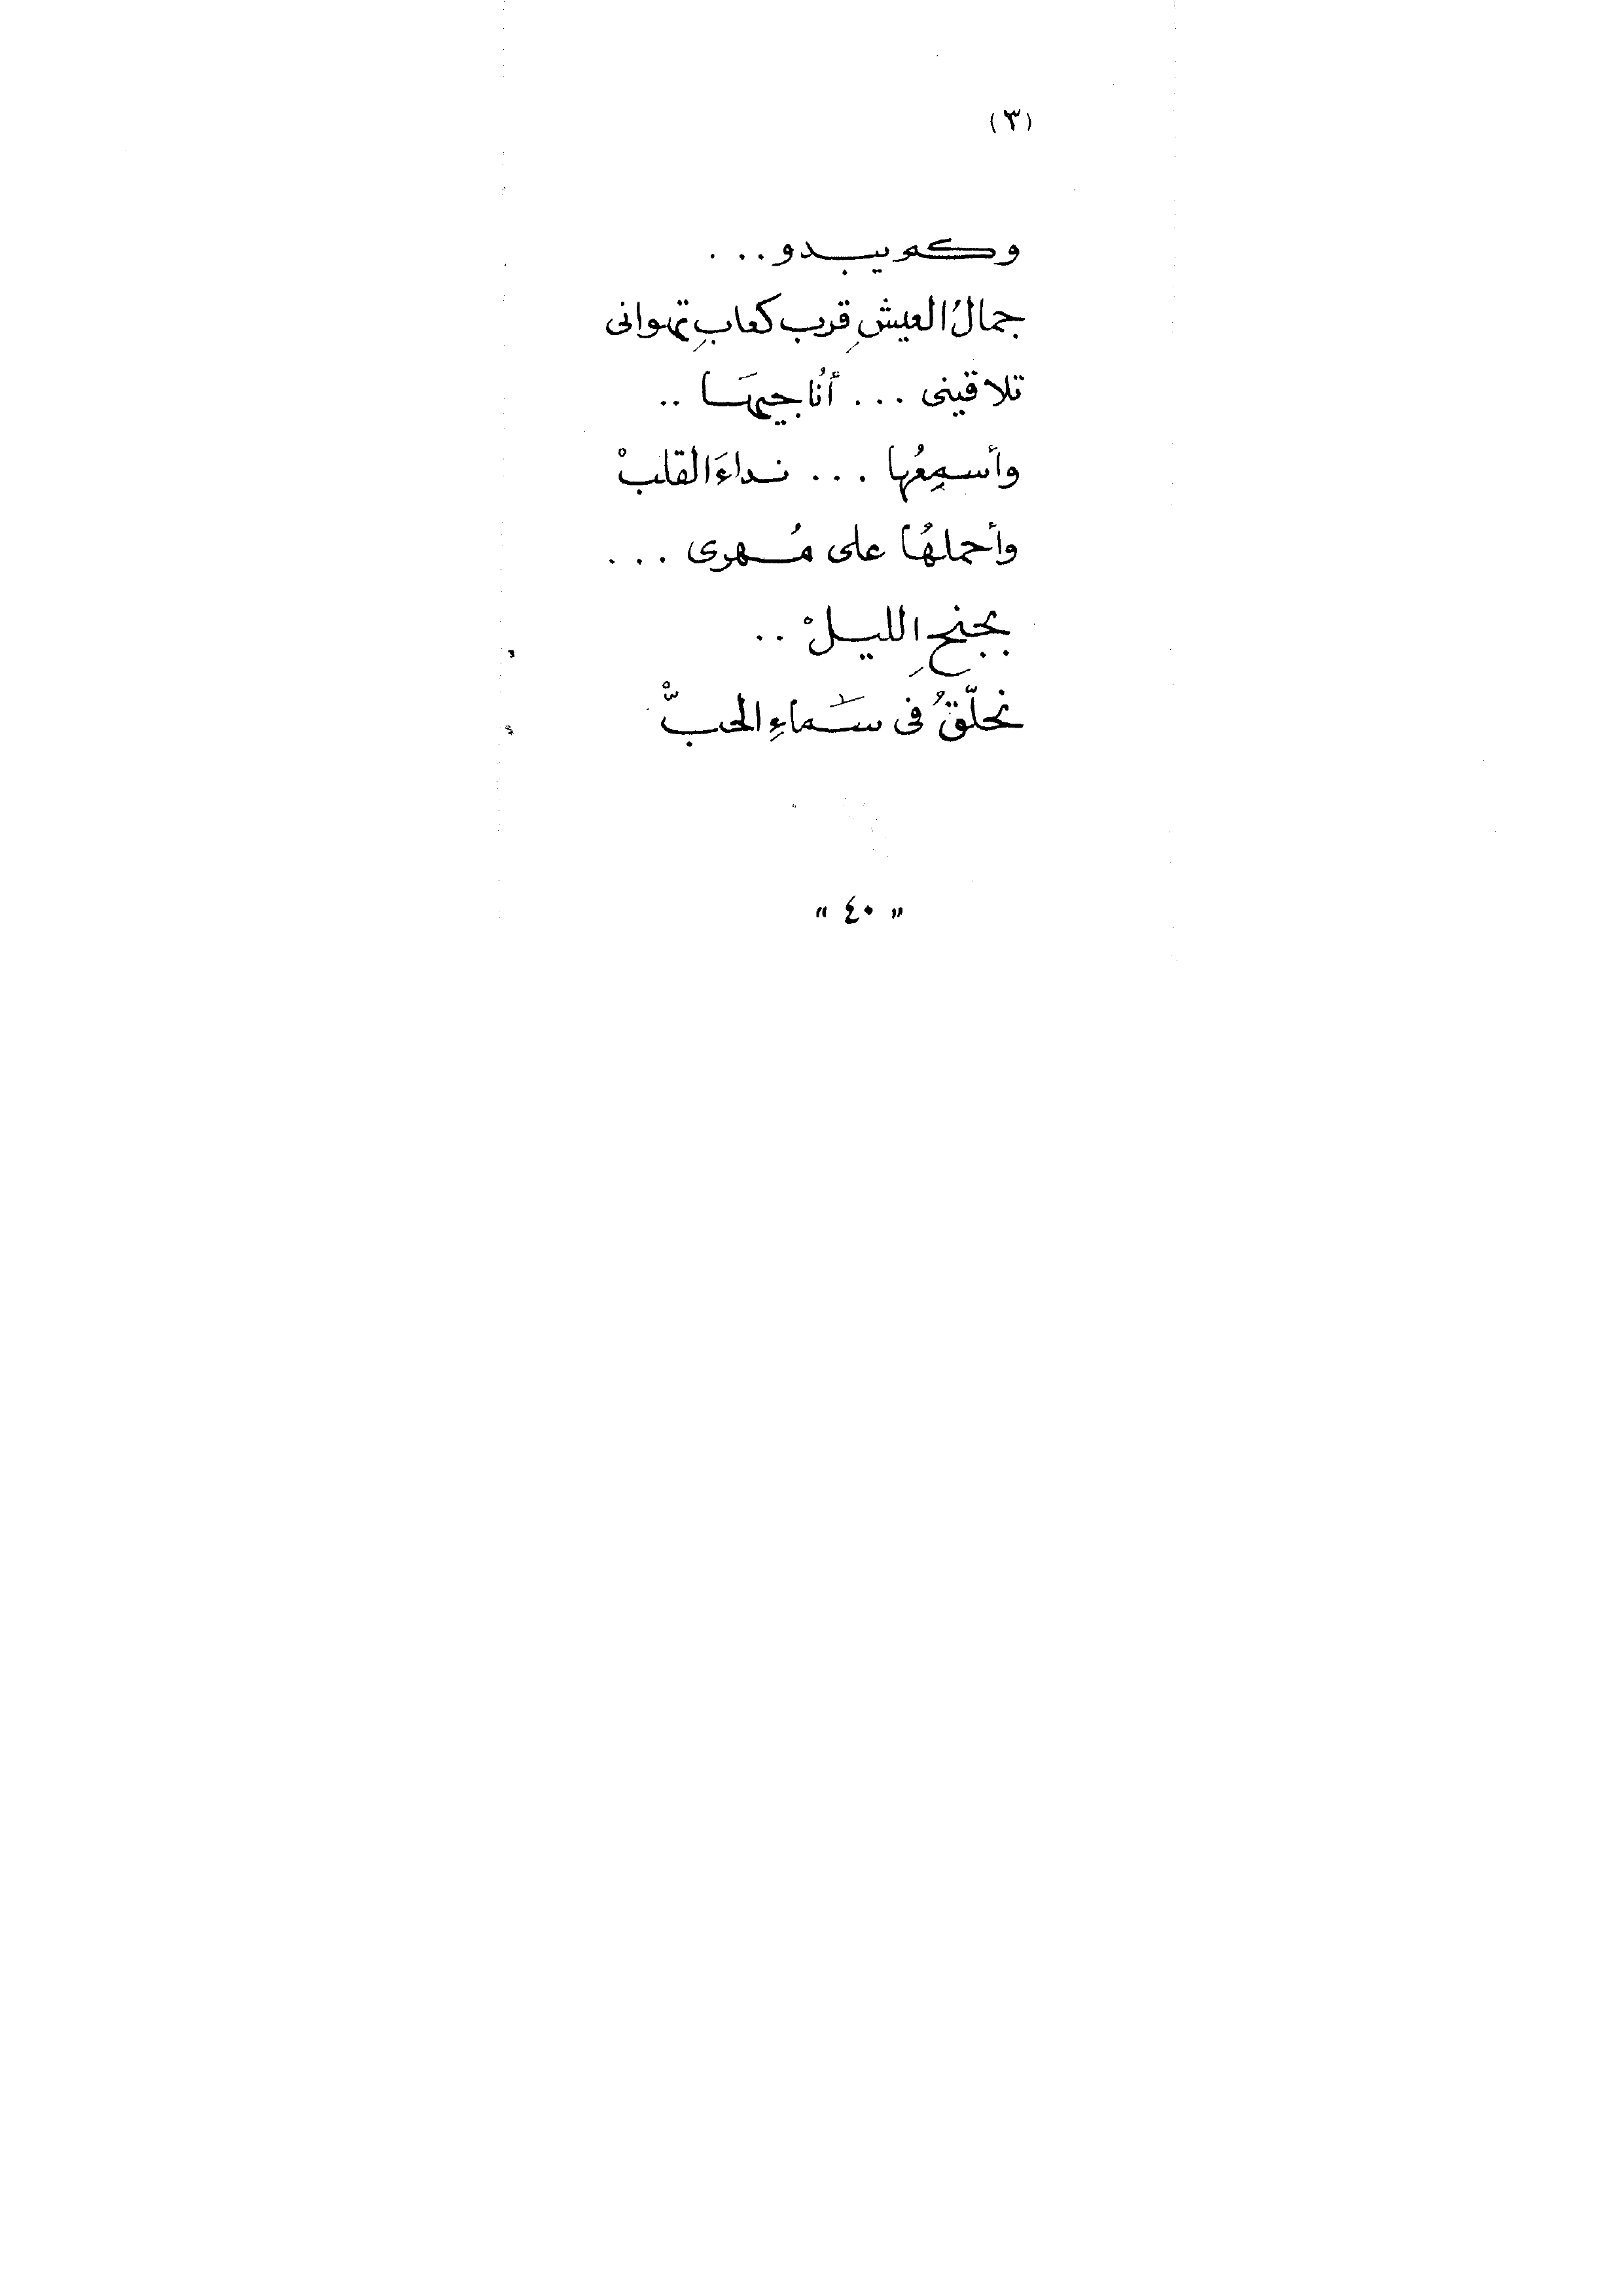 (٣)
وكم يبدو...
جمالُ العيشِ قرب كعابِ تهوانى
تلاقينى ... أُناجيهَا ..
وأسمِعُها ... نداءَ القلبْ
وأحملهُا على مُهرى ...
بجنحِ الليلْ ..
نحلّقُ فى سَماءِ الحبّْ
« ٤٠ »